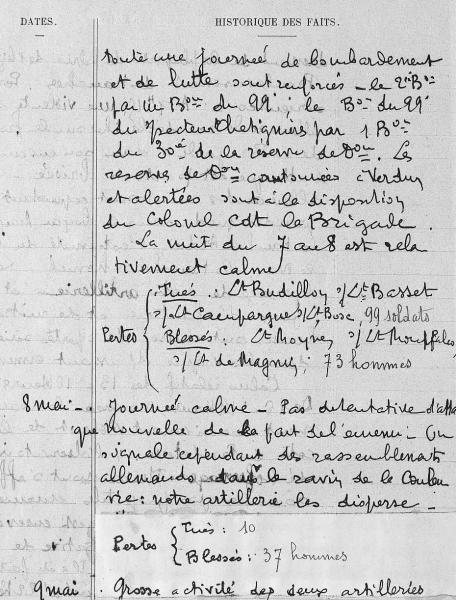 DATES. HISTORIQUE DES FAITS.
toute une journée de bombardement
et de lutte sont renforcés - le 2e Bon
par un Bon du 99e ; le Bon du 99e
du secteur Thetigniers par 1 Bon
du 30e de la réserve de Don. Les
reserves de Don cantonnées à Verdun
et alertées sont à la disposition
du Colonel Cdt la Brigade.
La nuit du 7 au 8 est rela
tivement calme
Pertes
Tués : Lt Budilloy s/Lt Basset
s/Lt Campargue s/Lt Bosc, 99 soldats
Blessés : Lt Moyne, s/Lt Mouffales,
s/Lt de Magnin ; 73 hommes
8 mai - Journée calme - Pas de tentative d'atta
que nouvelle de la part de l'ennemi - On
signale cependant des rassemblements
allemands dans le ravin de la Couleu
vre : notre artillerie les disperse -
Pertes
Tués : 10
Blessés : 37 hommes
9 mai . Grosse activité des deux artilleries